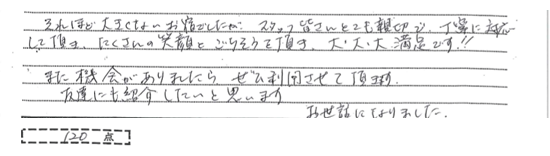 それほど大きくないお宿でしたが、スタッフ皆さんとても親切で、丁寧に対応
して頂き、たくさんの笑顔とごちそうで頂き、大・大・大満足です!!
また機会がありましたら ぜひ利用させて頂きます。
友達にも紹介したいと思います
お世話になりました。
120 点